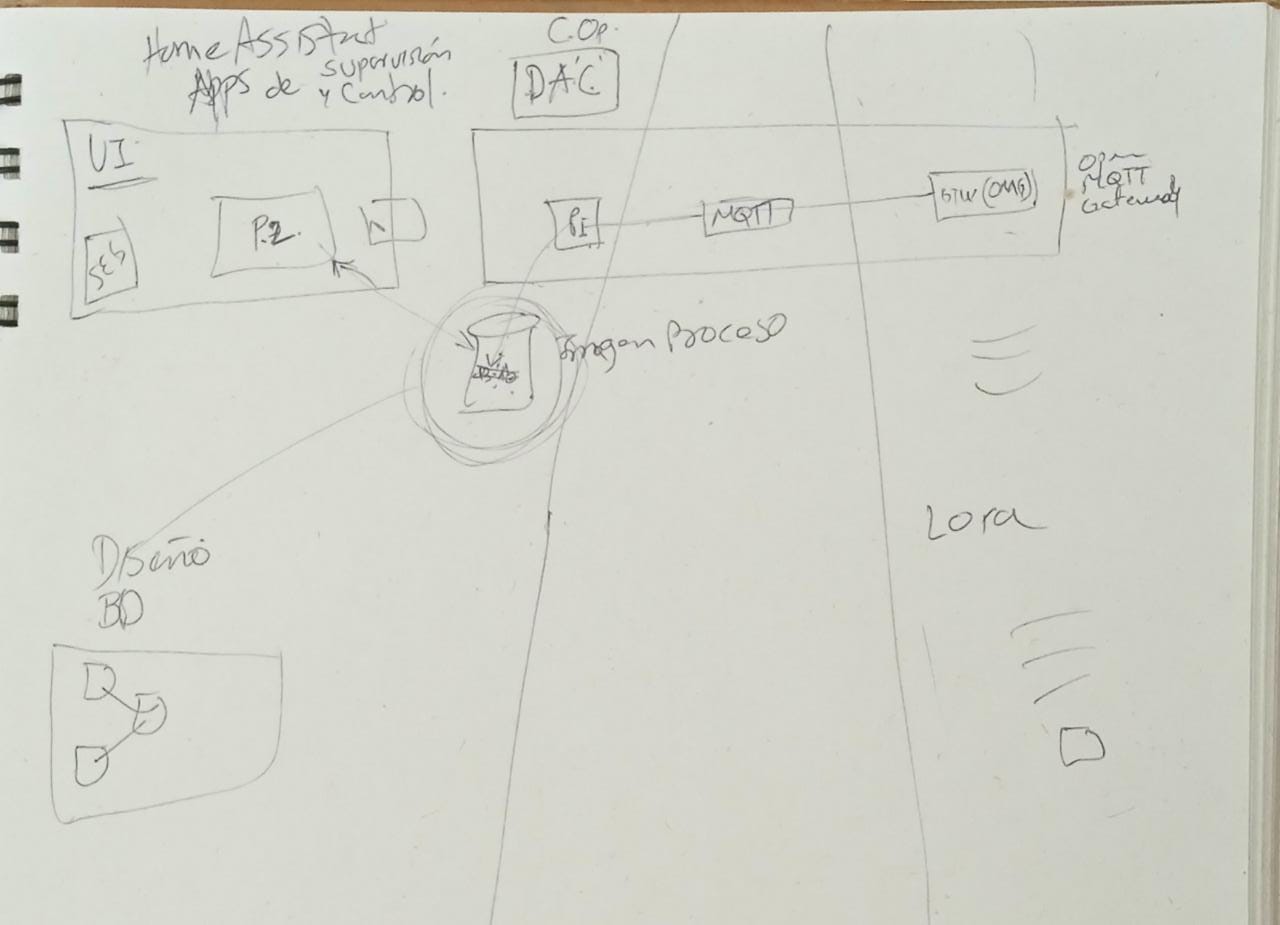 Home Assistant
Apps de supervisión
y Control.
C.Op.
DAC
UI
P.2.
MQTT
GTW (OMG)
Open
MQTT
Gateway
Imagen Proceso
Lora
Diseño
BD